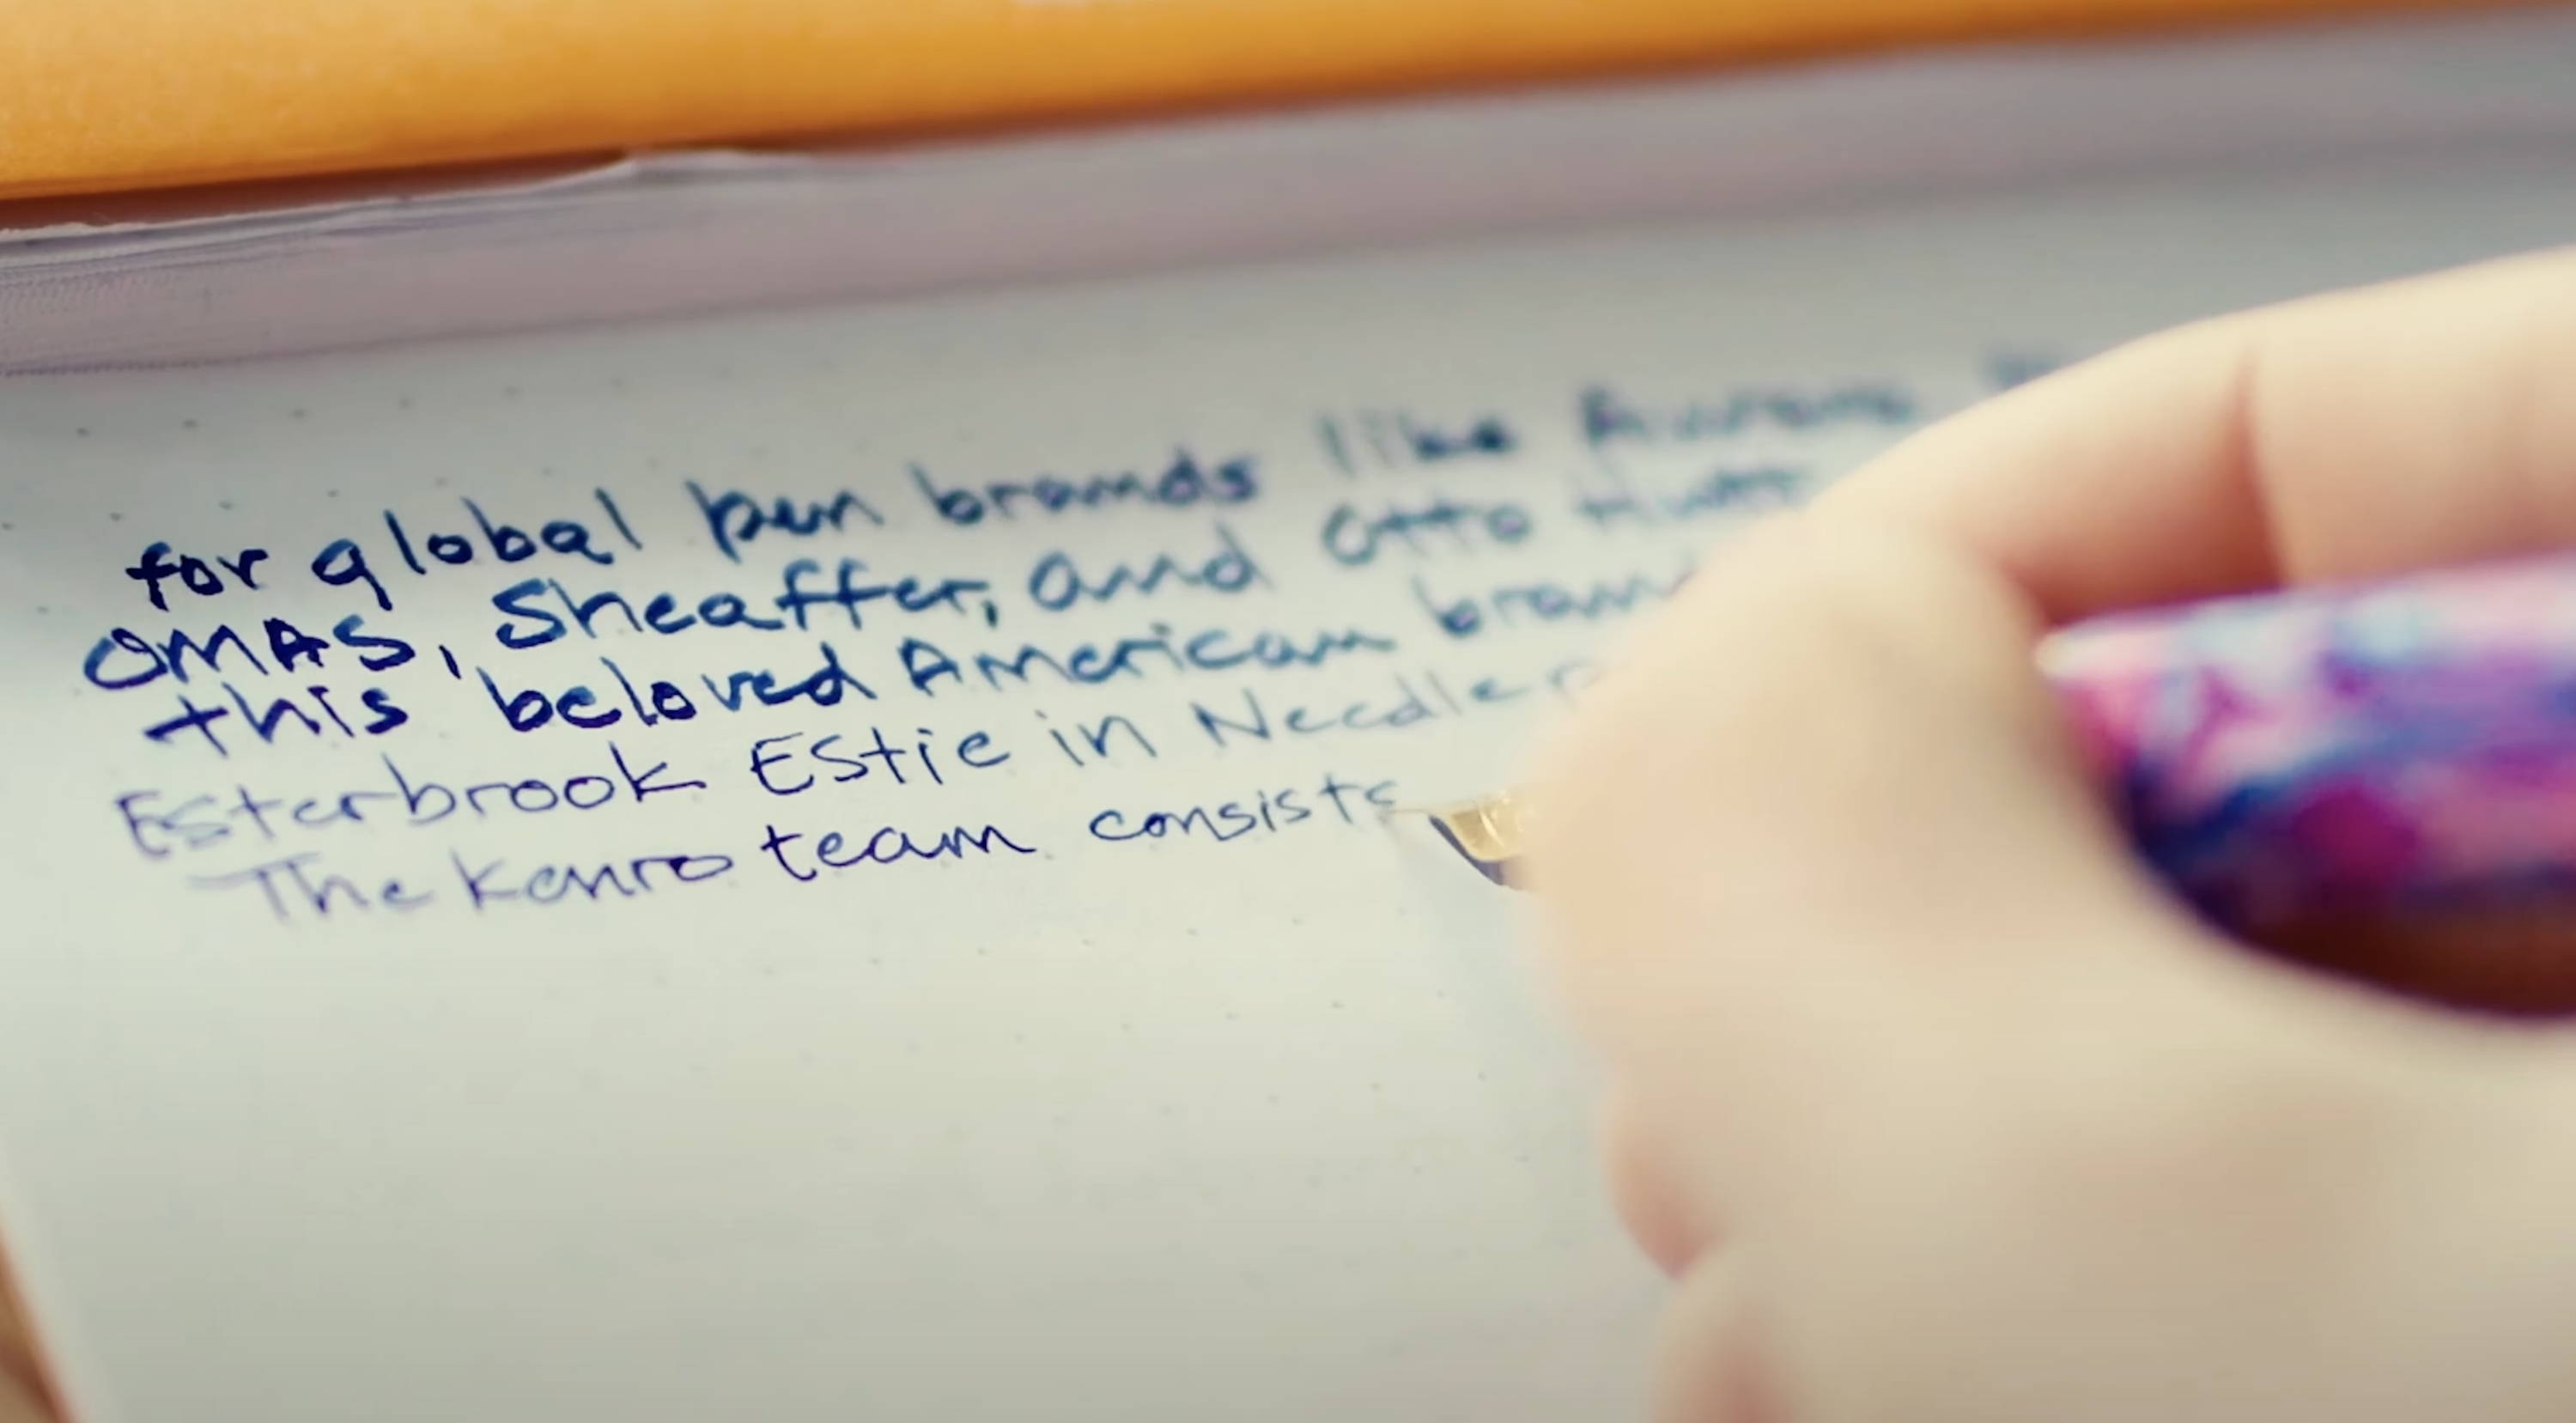 for global pen brands like Aurora
OMAS, Sheaffer, and Otto Hutt
this beloved American
Esterbrook Estie in
The Kenro team consists